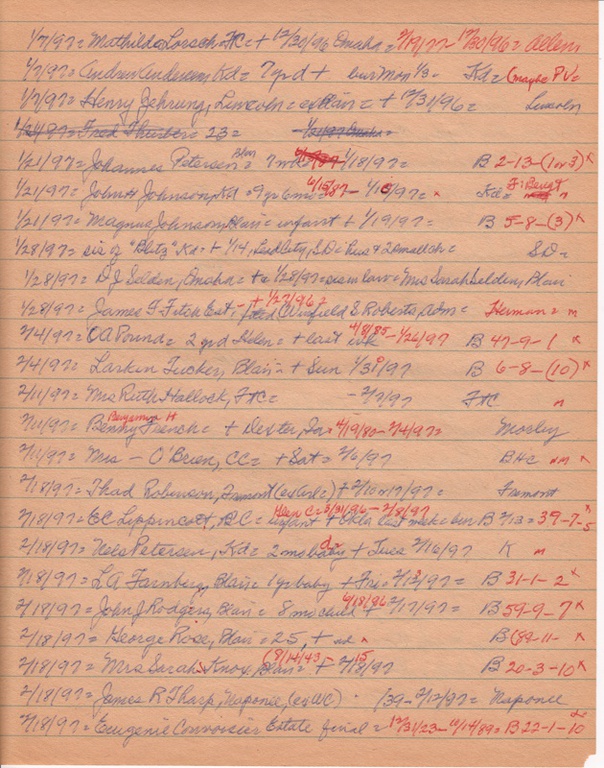 1/7/97 = Mathilda Lorsch = FC = + 12/20/96 Omaha = 2/19/77 - 12/20/96 = Allens
1/7/97 = Andrew Andersen, Kd = 7 yr d + bur Mon 1/3 = Kd = (maybe PV =
1/7/97 = Henry Jehrung, Lincoln = ex Blair = + 12/31/96 = Lincoln
1/21/97 = Fred Thurber = 23 = 1/21/97 Omaha =
1/21/97 = Johannes Petersen = Blair 7 wk = 1/18/97 = B 2-13-(1 or 3) x
1/21/97 = John H Johnson, Kd = 9 yr 6 mo = 6/15/87 - 1/10/97 = x Kd =
1/21/97 = Magnus Johnson, Blair = infant + 1/19/97 = B 5-8-(3) x
1/28/97 = sis of "Blitz" Kd = + 1/14, SD = hus + 2 small ch = SD =
1/28/97 = D J Selden, Omaha = + 1/28/97 = sis in law = Mrs Sarah Selden, Blair
1/28/97 = James F Fitch Est, - + 1/27/96 = Winfield S Roberts, adm = Herman = n
2/4/97 = C A Pound = 2 yr d Helen = + last wk 4/8/95 - 1/26/97 B 47-9-1 x
2/4/97 = Larkin Tucker, Blair = + Sun 1/31/97 B 6-8-(10) x
2/11/97 = Mrs Ruth Hallock, FtC = - 2/7/97 FtC n
2/11/97 = Benny French = Benjamin H + Dexter, Ia = 4/19/80 - 2/4/97 = Mosley
2/11/97 = Mrs - O'Brien, CC = + Sat = 2/6/97 BHC nn x
2/18/97 = Thad Robinson, Fremont (ex Wc) + 2/10 or 17/97 = Fremont
2/18/97 = EC Lippincott, BC = infant Helen C = 3/31/96 - 2/8/97 + Okla last week = ben B 2/13 = 39-7-5 x
2/18/97 = Nels Petersen, Kd = 2 mo baby + Tues 2/16/97 K n
2/18/97 = L A Farnberg, Blair = 1 yr baby + Fri = 2/12/97 = B 31-1-2 x
2/18/97 = John J Rodgers, Blair = 8 mo child + 6/18/96 2/17/97 = B 59-9-7 x
2/18/97 = George Rose, Blair = 25, + nd x B (84-11- x
2/18/97 = Mrs Sarah Knox, Blair = (8/14/43 - + 2/18/97 15 B 20-3-10 x
2/18/97 = James R Tharp, Naponee, (ex WC) (39 - 2/12/97 = Naponee
2/18/97 = Eugenie Convoisier Estate final = 12/31/23 - 10/14/89 = B 22-1-10